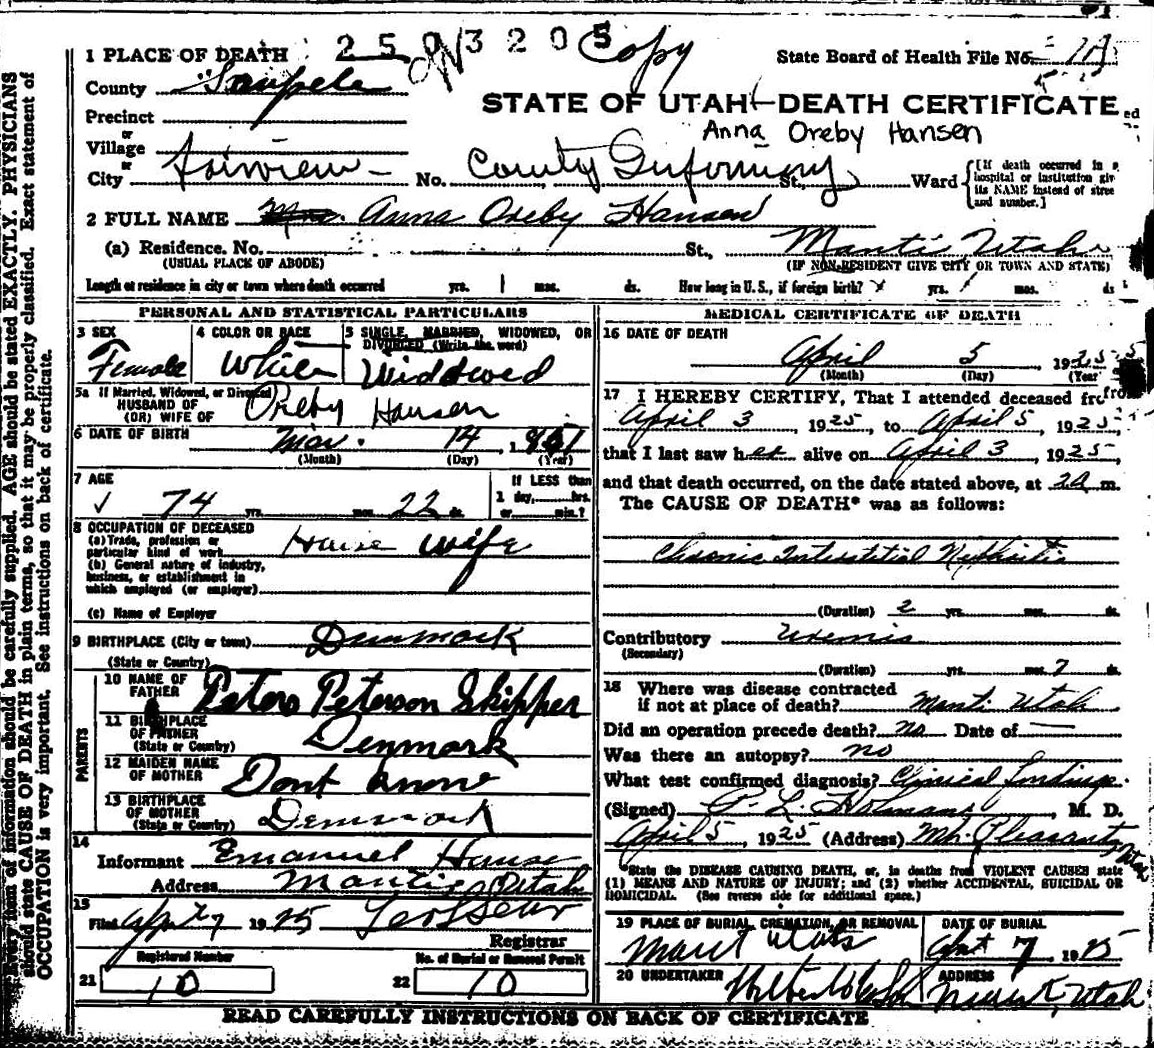 2 5 0 3 2 0 5 Copy
1 PLACE OF DEATH
State Board of Health File No.
County Sanpete
STATE OF UTAH—DEATH CERTIFICATE
Precinct
Anna Oreby Hansen
or
Village
or
City Fairview No. County Infirmary St., Ward
[If death occurred in a hospital or institution give its NAME instead of street and number.]
2 FULL NAME Mrs. Anna Oreby Hansen
(a) Residence. No. St., Manti Utah
(USUAL PLACE OF ABODE) (IF NON-RESIDENT GIVE CITY OR TOWN AND STATE)
Length of residence in city or town where death occurred yrs. 1 mos. ds. How long in U.S., if foreign birth? yrs. mos. ds
PERSONAL AND STATISTICAL PARTICULARS
3 SEX
Female
4 COLOR OR RACE
White
5 SINGLE, MARRIED, WIDOWED, OR DIVORCED (Write the word)
Widowed
5a If Married, Widowed, or Divorced
HUSBAND OF
(OR) WIFE OF Oreby Hansen
6 DATE OF BIRTH Mar. 14 1851
(Month) (Day) (Year)
7 AGE
74 yrs. mos. 22 ds.
If LESS than
1 day, hrs.
or min.?
8 OCCUPATION OF DECEASED
(a) Trade, profession or
particular kind of work House wife
(b) General nature of industry,
business, or establishment in
which employed (or employer)
(c) Name of Employer
9 BIRTHPLACE (City or town) Denmark
(State or Country)
PARENTS
10 NAME OF
FATHER Peters Peterson Skipper
11 BIRTHPLACE
OF FATHER
(State or Country) Denmark
12 MAIDEN NAME
OF MOTHER Dont know
13 BIRTHPLACE
OF MOTHER
(State or Country) Denmark
14
Informant Emanuel Hanse
Address Manti Utah
15
Filed Apr 27 1925
Registrar
Registered Number
21 10
No. of Burial or Removal Permit
22 10
MEDICAL CERTIFICATE OF DEATH
16 DATE OF DEATH
April 5 1925
(Month) (Day) (Year)
17 I HEREBY CERTIFY, That I attended deceased from
April 3, 1925, to April 5, 1925,
that I last saw her alive on April 3, 1925,
and that death occurred, on the date stated above, at 2a m.
The CAUSE OF DEATH* was as follows:
Chronic Interstitial Nephritis
(Duration) 2 yrs. mos. ds.
Contributory Uremia
(Secondary)
(Duration) yrs. mos. 7 ds.
18 Where was disease contracted
if not at place of death? Manti Utah
Did an operation precede death? No Date of —
Was there an autopsy? no
What test confirmed diagnosis? Clinical findings.
(Signed) , M. D.
April 5, 1925 (Address) Mt. Pleasant, Utah
*State the DISEASE CAUSING DEATH, or, in deaths from VIOLENT CAUSES state
(1) MEANS AND NATURE OF INJURY; and (2) whether ACCIDENTAL, SUICIDAL OR
HOMICIDAL. (See reverse side for additional space.)
19 PLACE OF BURIAL, CREMATION, OR REMOVAL
DATE OF BURIAL
Utah
7 1925
20 UNDERTAKER
ADDRESS
Utah
READ CAREFULLY INSTRUCTIONS ON BACK OF CERTIFICATE
Every item of information should be carefully supplied. AGE should be stated EXACTLY. PHYSICIANS
should state CAUSE OF DEATH in plain terms, so that it may be properly classified. Exact statement of
OCCUPATION is very important. See instructions on back of certificate.